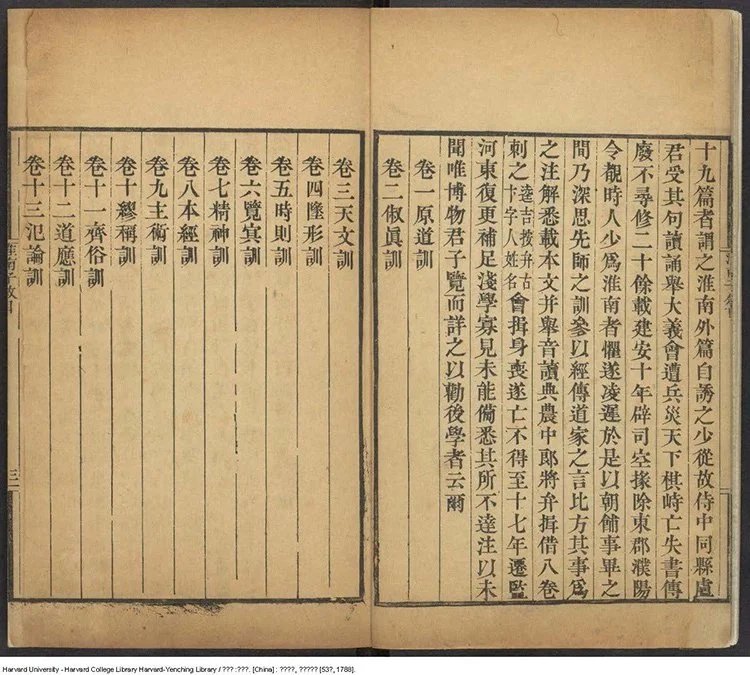 十九篇者謂之淮南外篇自誘之少從故侍中同縣盧
君受其句讀誦舉大義會遭兵災天下棋峙亡失書傳
廢不尋修二十餘載建安十年辟司空掾除東郡濮陽
令覩時人少爲淮南者懼遂凌遲於是以朝餔事畢之
間乃深思先師之訓參以經傳道家之言比方其事爲
之注解悉載本文并舉音讀典農中郎將弁揖借八卷
刺之逵吉按弁古卞字人姓名會揖身喪遂亡不得至十七年遷監
河東復更補足淺學寡見未能備悉其所不達注以未
聞唯博物君子覽而詳之以勸後學者云爾
卷一原道訓
卷二俶眞訓
卷三天文訓
卷四墬形訓
卷五時則訓
卷六覽冥訓
卷七精神訓
卷八本經訓
卷九主術訓
卷十繆稱訓
卷十一齊俗訓
卷十二道應訓
卷十三氾論訓
三
Harvard University - Harvard College Library Harvard-Yenching Library / ??? :???. [China] : ????, ????? [53?, 1788].